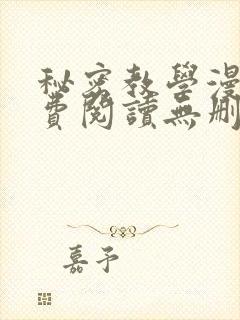 秘密教學漫
費閱讀無刪
嘉予